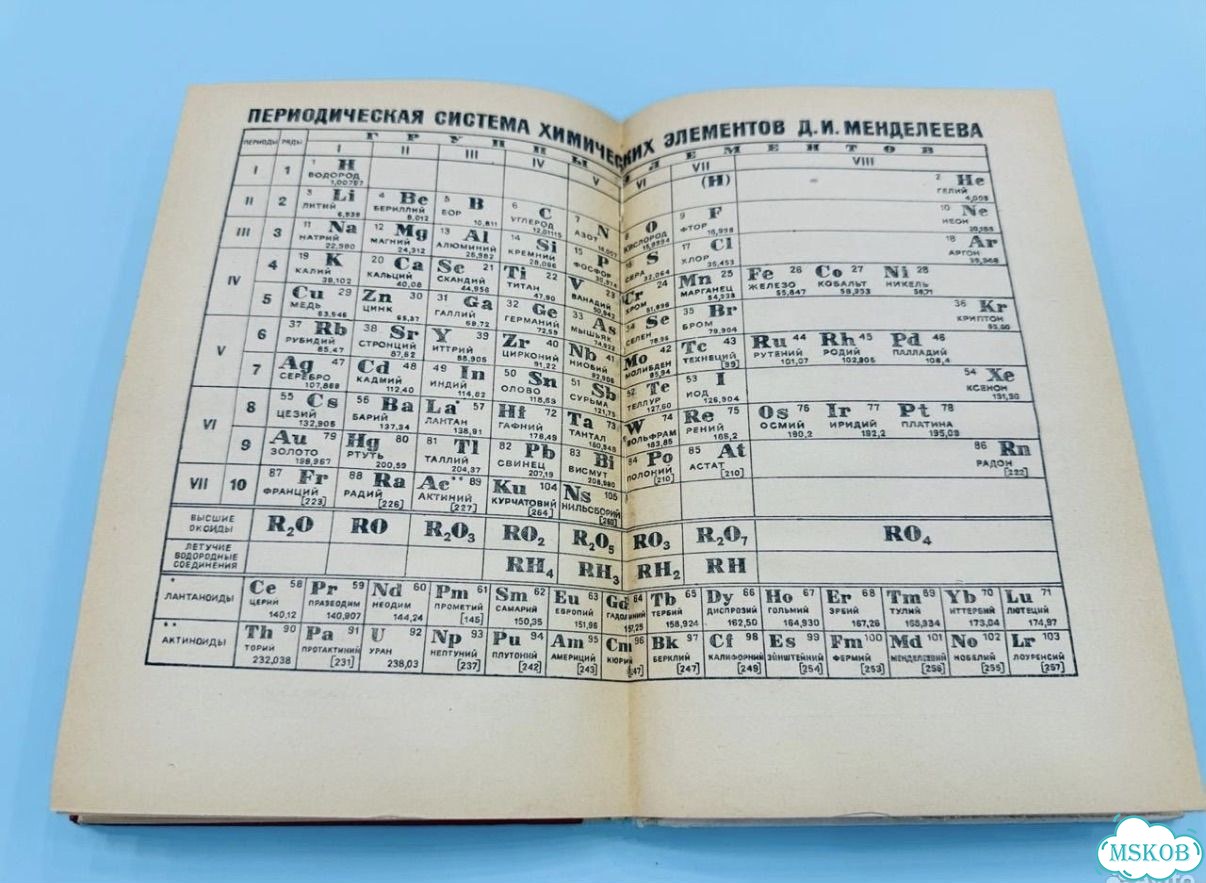 ПЕРИОДИЧЕСКАЯ СИСТЕМА ХИМИЧЕСКИХ ЭЛЕМЕНТОВ Д.И. МЕНДЕЛЕЕВА
ПЕРИОДЫ РЯДЫ ГРУППЫ ЭЛЕМЕНТОВ
I II III IV V VI VII VIII
I 1 1 H ВОДОРОД 1,00797 (H) 2 He ГЕЛИЙ 4,003
II 2 3 Li ЛИТИЙ 6,939 4 Be БЕРИЛЛИЙ 9,012 5 B БОР 10,811 6 C УГЛЕРОД 12,01115 7 N АЗОТ 14,007 O КИСЛОРОД 15,9994 9 F ФТОР 18,998 10 Ne НЕОН 20,183
III 3 11 Na НАТРИЙ 22,990 12 Mg МАГНИЙ 24,312 13 Al АЛЮМИНИЙ 26,982 14 Si КРЕМНИЙ 28,086 15 P ФОСФОР 30,974 16 S СЕРА 32,064 17 Cl ХЛОР 35,453 18 Ar АРГОН 39,948
IV 4 19 K КАЛИЙ 39,102 20 Ca КАЛЬЦИЙ 40,08 Sc 21 СКАНДИЙ 44,956 Ti 22 ТИТАН 47,90 V 23 ВАНАДИЙ 50,942 Cr 24 ХРОМ 51,996 Mn 25 МАРГАНЕЦ 54,938 Fe 26 ЖЕЛЕЗО 55,847 Co 27 КОБАЛЬТ 58,933 Ni 28 НИКЕЛЬ 58,71
5 Cu 29 МЕДЬ 63,546 Zn 30 ЦИНК 65,37 31 Ga ГАЛЛИЙ 69,72 32 Ge ГЕРМАНИЙ 72,59 33 As МЫШЬЯК 74,922 34 Se СЕЛЕН 78,96 35 Br БРОМ 79,904 36 Kr КРИПТОН 83,80
V 6 37 Rb РУБИДИЙ 85,47 38 Sr СТРОНЦИЙ 87,62 Y 39 ИТТРИЙ 88,905 Zr 40 ЦИРКОНИЙ 91,22 Nb 41 НИОБИЙ 92,906 Mo 42 МОЛИБДЕН 95,94 Tc 43 ТЕХНЕЦИЙ [99] Ru 44 РУТЕНИЙ 101,07 Rh 45 РОДИЙ 102,905 Pd 46 ПАЛЛАДИЙ 106,4
7 Ag 47 СЕРЕБРО 107,868 Cd 48 КАДМИЙ 112,40 49 In ИНДИЙ 114,82 50 Sn ОЛОВО 118,69 51 Sb СУРЬМА 121,75 52 Te ТЕЛЛУР 127,60 53 I ИОД 126,904 54 Xe КСЕНОН 131,30
VI 8 55 Cs ЦЕЗИЙ 132,905 56 Ba БАРИЙ 137,34 La* 57 ЛАНТАН 138,91 Hf 72 ГАФНИЙ 178,49 Ta 73 ТАНТАЛ 180,948 W 74 ВОЛЬФРАМ 183,85 Re 75 РЕНИЙ 186,2 Os 76 ОСМИЙ 190,2 Ir 77 ИРИДИЙ 192,2 Pt 78 ПЛАТИНА 195,09
9 Au 79 ЗОЛОТО 196,967 Hg 80 РТУТЬ 200,59 81 Tl ТАЛЛИЙ 204,37 82 Pb СВИНЕЦ 207,19 83 Bi ВИСМУТ 208,980 84 Po ПОЛОНИЙ [210] 85 At АСТАТ [210] 86 Rn РАДОН [222]
VII 10 87 Fr ФРАНЦИЙ [223] 88 Ra РАДИЙ [226] Ac** 89 АКТИНИЙ [227] Ku 104 КУРЧАТОВИЙ [264] Ns 105 НИЛЬСБОРИЙ
ВЫСШИЕ ОКСИДЫ R₂O RO R₂O₃ RO₂ R₂O₅ RO₃ R₂O₇ RO₄
ЛЕТУЧИЕ ВОДОРОДНЫЕ СОЕДИНЕНИЯ RH₄ RH₃ RH₂ RH
* ЛАНТАНОИДЫ Ce 58 ЦЕРИЙ 140,12 Pr 59 ПРАЗЕОДИМ 140,907 Nd 60 НЕОДИМ 144,24 Pm 61 ПРОМЕТИЙ [145] Sm 62 САМАРИЙ 150,35 Eu 63 ЕВРОПИЙ 151,96 Gd 64 ГАДОЛИНИЙ 157,25 Tb 65 ТЕРБИЙ 158,924 Dy 66 ДИСПРОЗИЙ 162,50 Ho 67 ГОЛЬМИЙ 164,930 Er 68 ЭРБИЙ 167,26 Tm 69 ТУЛИЙ 168,934 Yb 70 ИТТЕРБИЙ 173,04 Lu 71 ЛЮТЕЦИЙ 174,97
** АКТИНОИДЫ Th 90 ТОРИЙ 232,038 Pa 91 ПРОТАКТИНИЙ [231] U 92 УРАН 238,03 Np 93 НЕПТУНИЙ [237] Pu 94 ПЛУТОНИЙ [242] Am 95 АМЕРИЦИЙ [243] Cm 96 КЮРИЙ [247] Bk 97 БЕРКЛИЙ [247] Cf 98 КАЛИФОРНИЙ [249] Es 99 ЭЙНШТЕЙНИЙ [254] Fm 100 ФЕРМИЙ [253] Md 101 МЕНДЕЛЕВИЙ [256] No 102 НОБЕЛИЙ [255] Lr 103 ЛОУРЕНСИЙ [257]
MSKOB